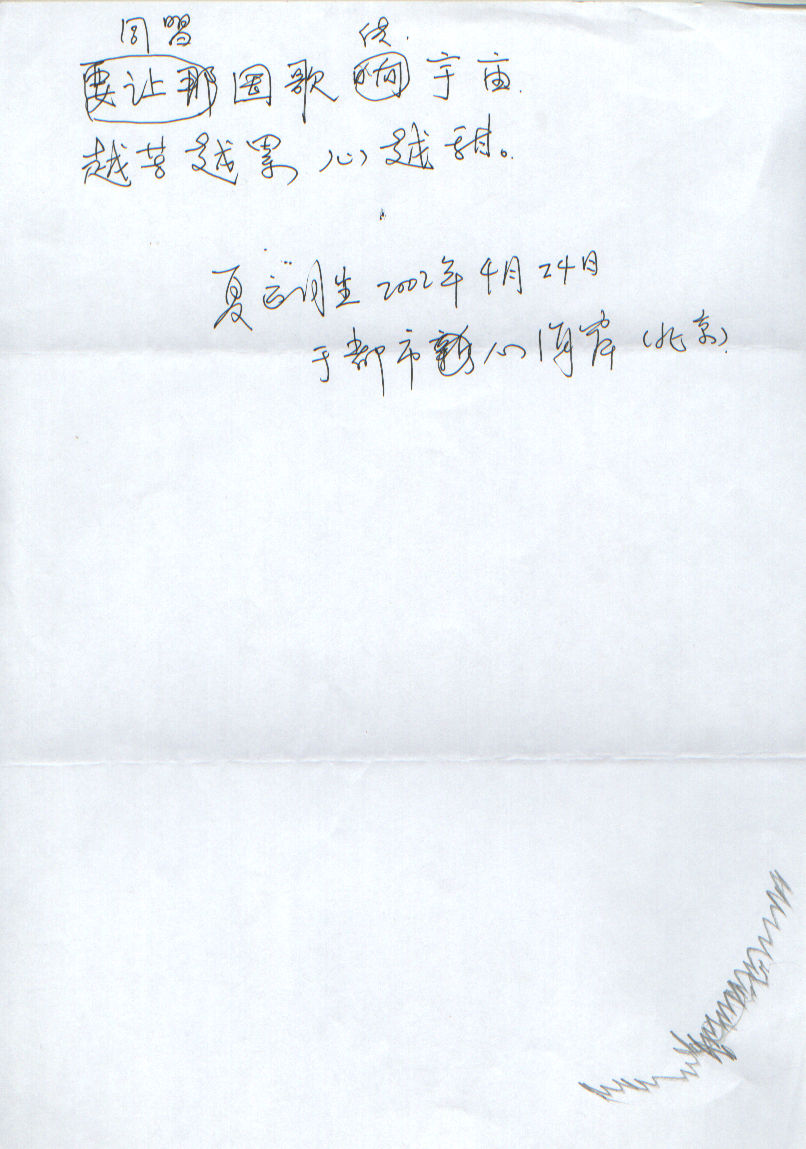 同盟 传.
要让那国歌响宇宙.
越苦越累心越甜。
夏 生2002年4月24日
于都市 心海岸(北京)